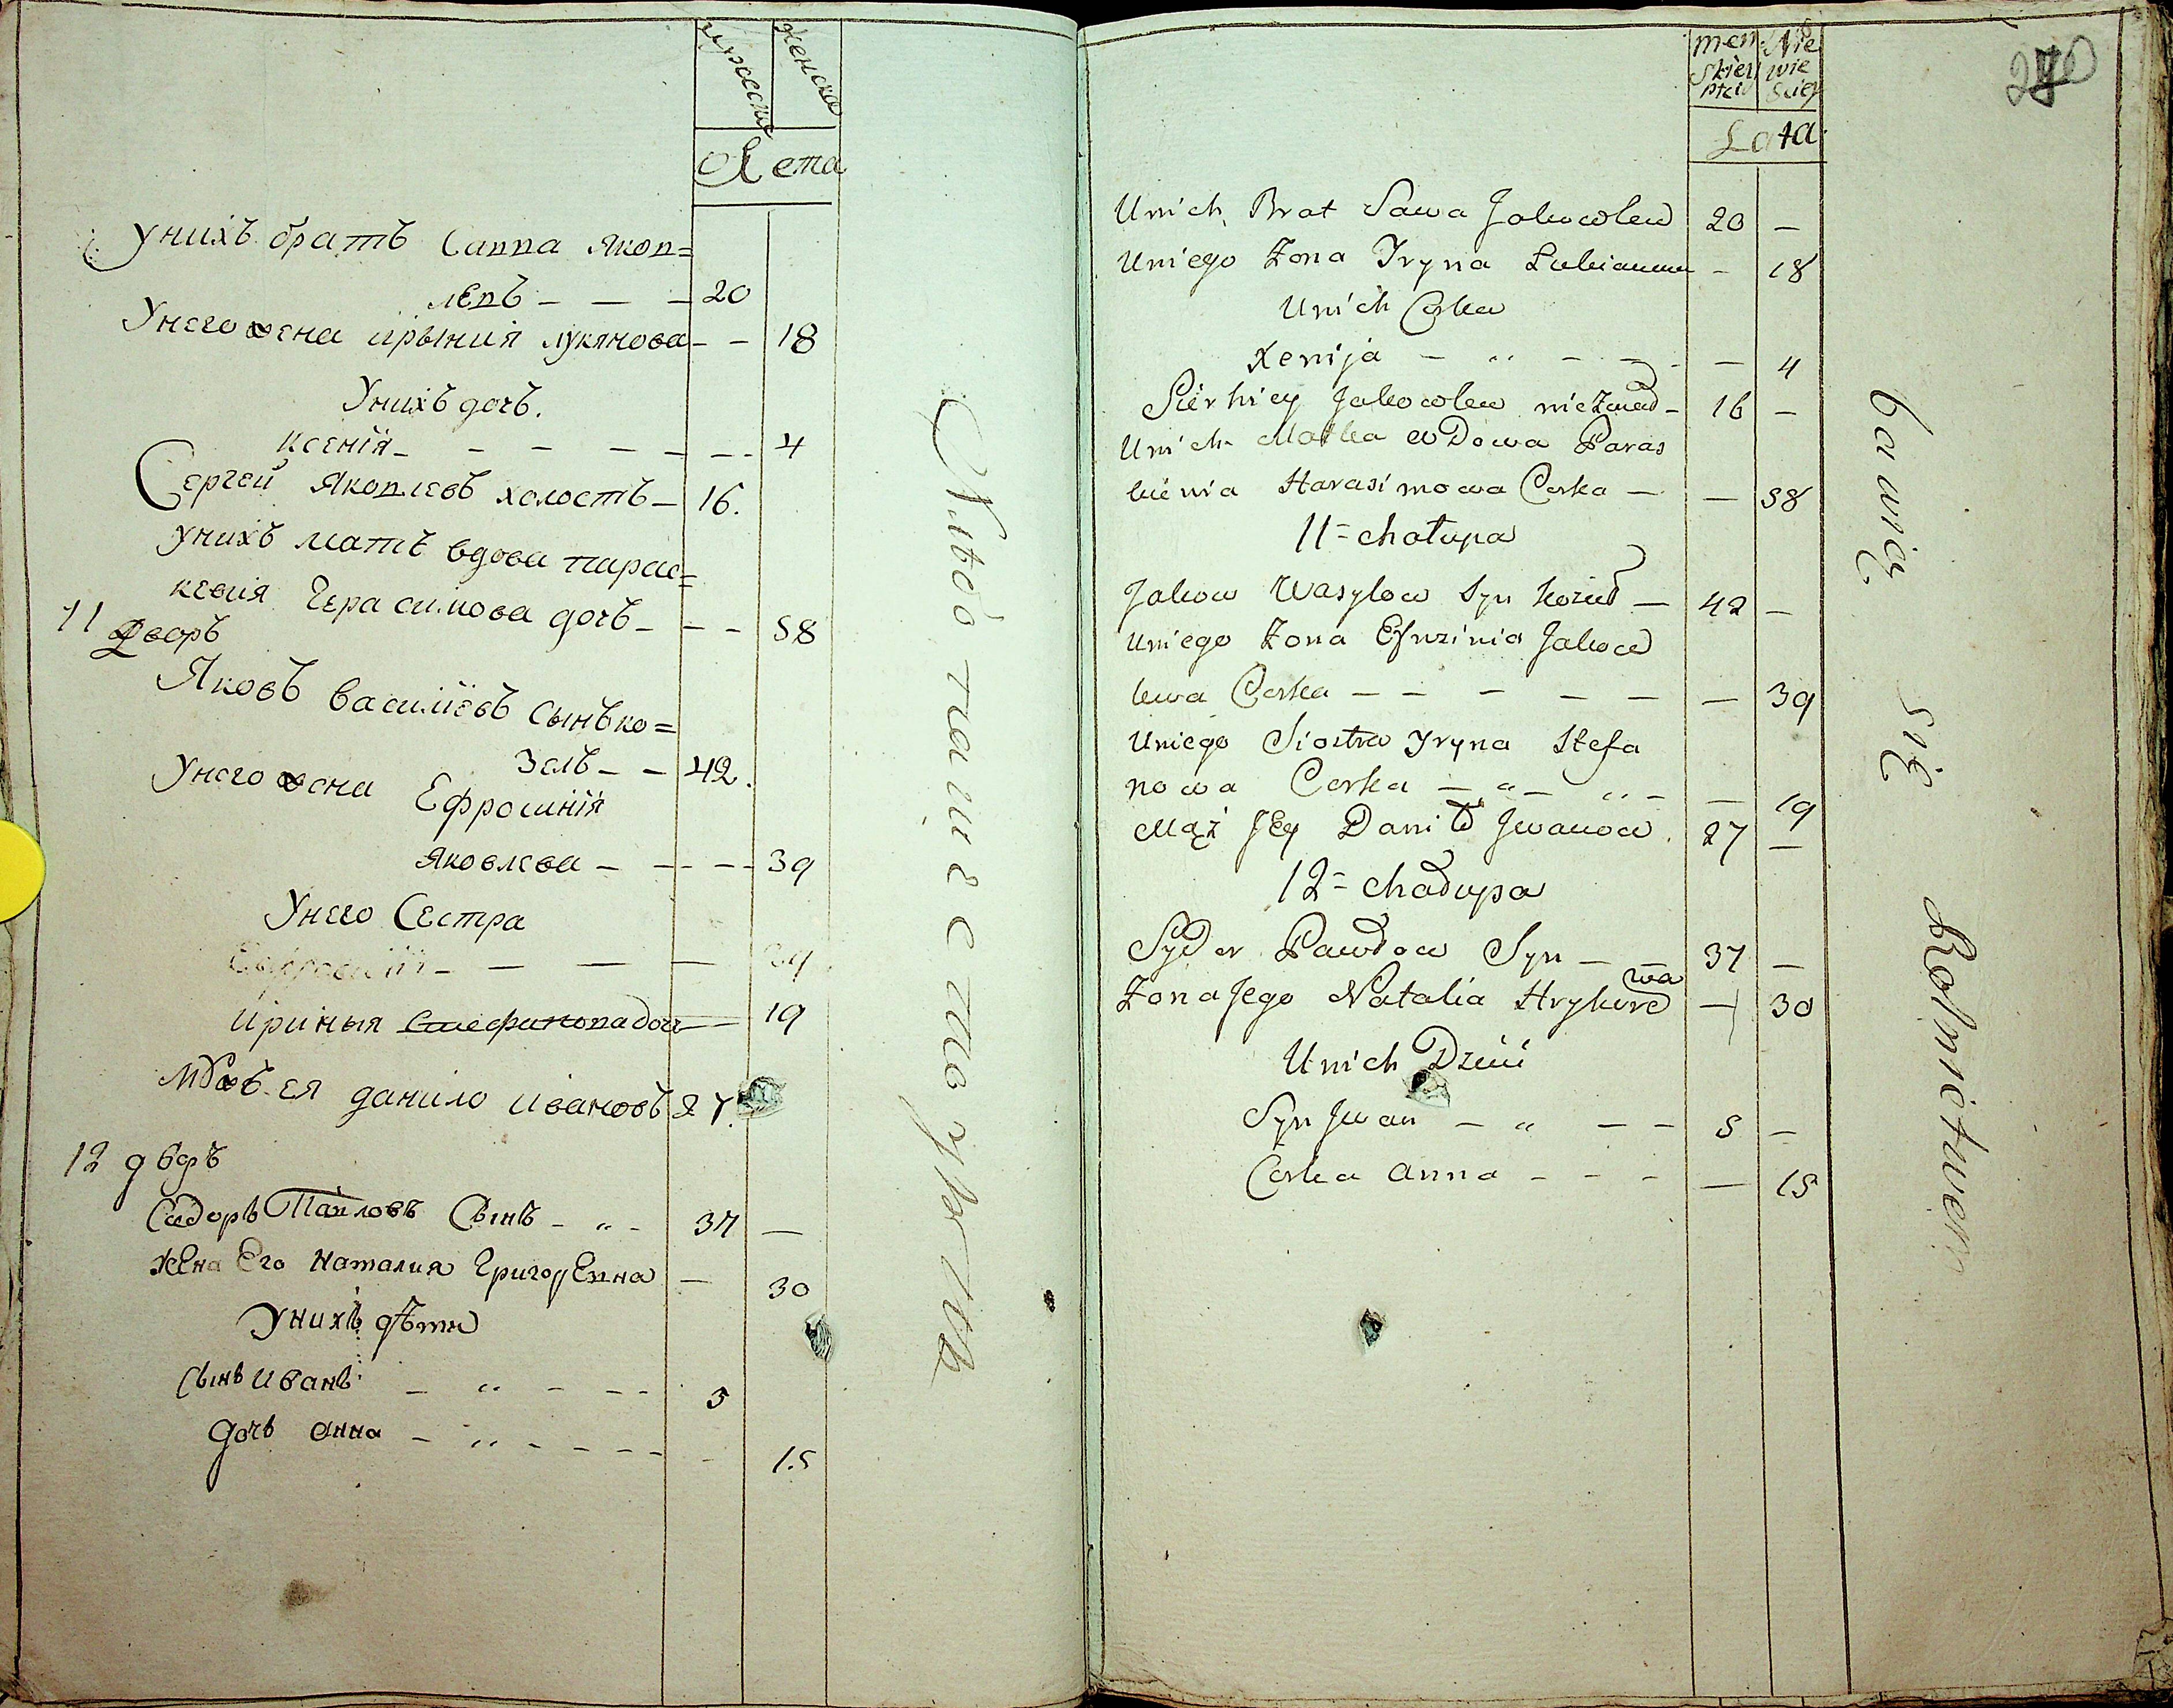 мужеска
женска
Лета
Унихъ братъ Савва Яков=
левъ — — — 20
Унего жена ирыния лукянова — — 18
Унихъ дочь.
Ксенїя — — — — — — 4
Сергей Яковлевъ холостъ — 16.
унихъ мать вдова парас=
кевия Герасимова дочь — — — 58
11 Дворъ
Яковъ василїевъ сынъ ко=
зелъ — — 42.
Унего жена Ефросинїя
Яковлева — — — — 39
Унего Сестра
ириныя Стефановадоч — 19
Мужъ ея данило ивановъ 27.
12 двǫръ
Сидоръ Павловъ Сынъ — „ — 37 —
Жена Его Наталия Григорǀевна — 30
Унихъ дѣти
Сынъ Иванъ — „ — — — 5
дочь Анна — „ — — — — - 15
270
men Nie
skiey wie
płci sciey
Lata
Unich Brat Sawa Jakowlew 20 —
Uniego Żona Iryna Łukianowa — 18
Unich Corka
Xenija — „ — — — — 4
Sierhiey Jakowlew nieżonad — 16 —
Unich Matka wDowa Paras
kiewia Harasimowa Corka — — 58
11 = chałupa
Jakow Wasylow Syn Kozieł — 42 —
Uniego Żona Efruzinia Jakow
lewa Corka — — — — — — 39
Uniego Siostra Iryna Stefa
nowa Corka — „ — „ — — 19
Mąż Jey Daniło Jwanow. 27 —
12 = chałupa
Sydor Pawłow Syn — 37 —
Żona Jego Natalia Hryhore wa — 30
Unich Dzieci
Syn Jwan — „ — — 5 —
Corka Anna — — — — 15
bawią się Rolnictwem